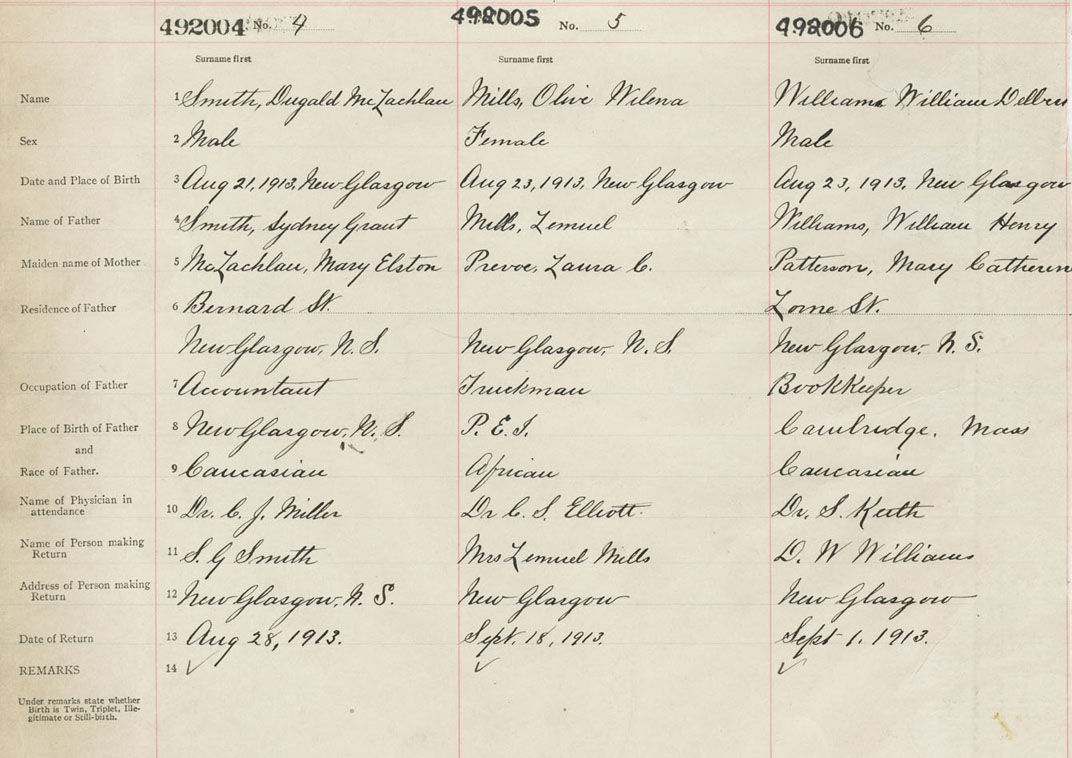 492004 No. 4 492005 No. 5 492006 No. 6
Surname first Surname first Surname first
Name 1 Smith, Dugald McLachlan Mills, Olive Wilena Williams William Delbert
Sex 2 Male Female Male
Date and Place of Birth 3 Aug 21, 1913, New Glasgow Aug 23, 1913, New Glasgow Aug 23, 1913, New Glasgow
Name of Father 4 Smith, Sydney Grant Mills, Lemuel Williams, William Henry
Maiden name of Mother 5 McLachlan, Mary Elston Prevoe, Laura C. Patterson, Mary Catherin
Residence of Father 6 Bernard St. Lorne St.
New Glasgow, N. S. New Glasgow, N. S. New Glasgow, N. S.
Occupation of Father 7 Accountant Truckman Bookkeeper
Place of Birth of Father 8 New Glasgow, N. S. P. E. I. Cambridge, Mass
and
Race of Father. 9 Caucasian African Caucasian
Name of Physician in
attendance 10 Dr. C. J. Miller Dr C. S. Elliott. Dr. S. Keith
Name of Person making
Return 11 S. G Smith Mrs Lemuel Mills D. W Williams
Address of Person making
Return 12 New Glasgow, N. S. New Glasgow New Glasgow
Date of Return 13 Aug 28, 1913. Sept. 18, 1913. Sept 1. 1913.
REMARKS 14
Under remarks state whether
Birth is Twin, Triplet, Ille-
gitimate or Still-birth.